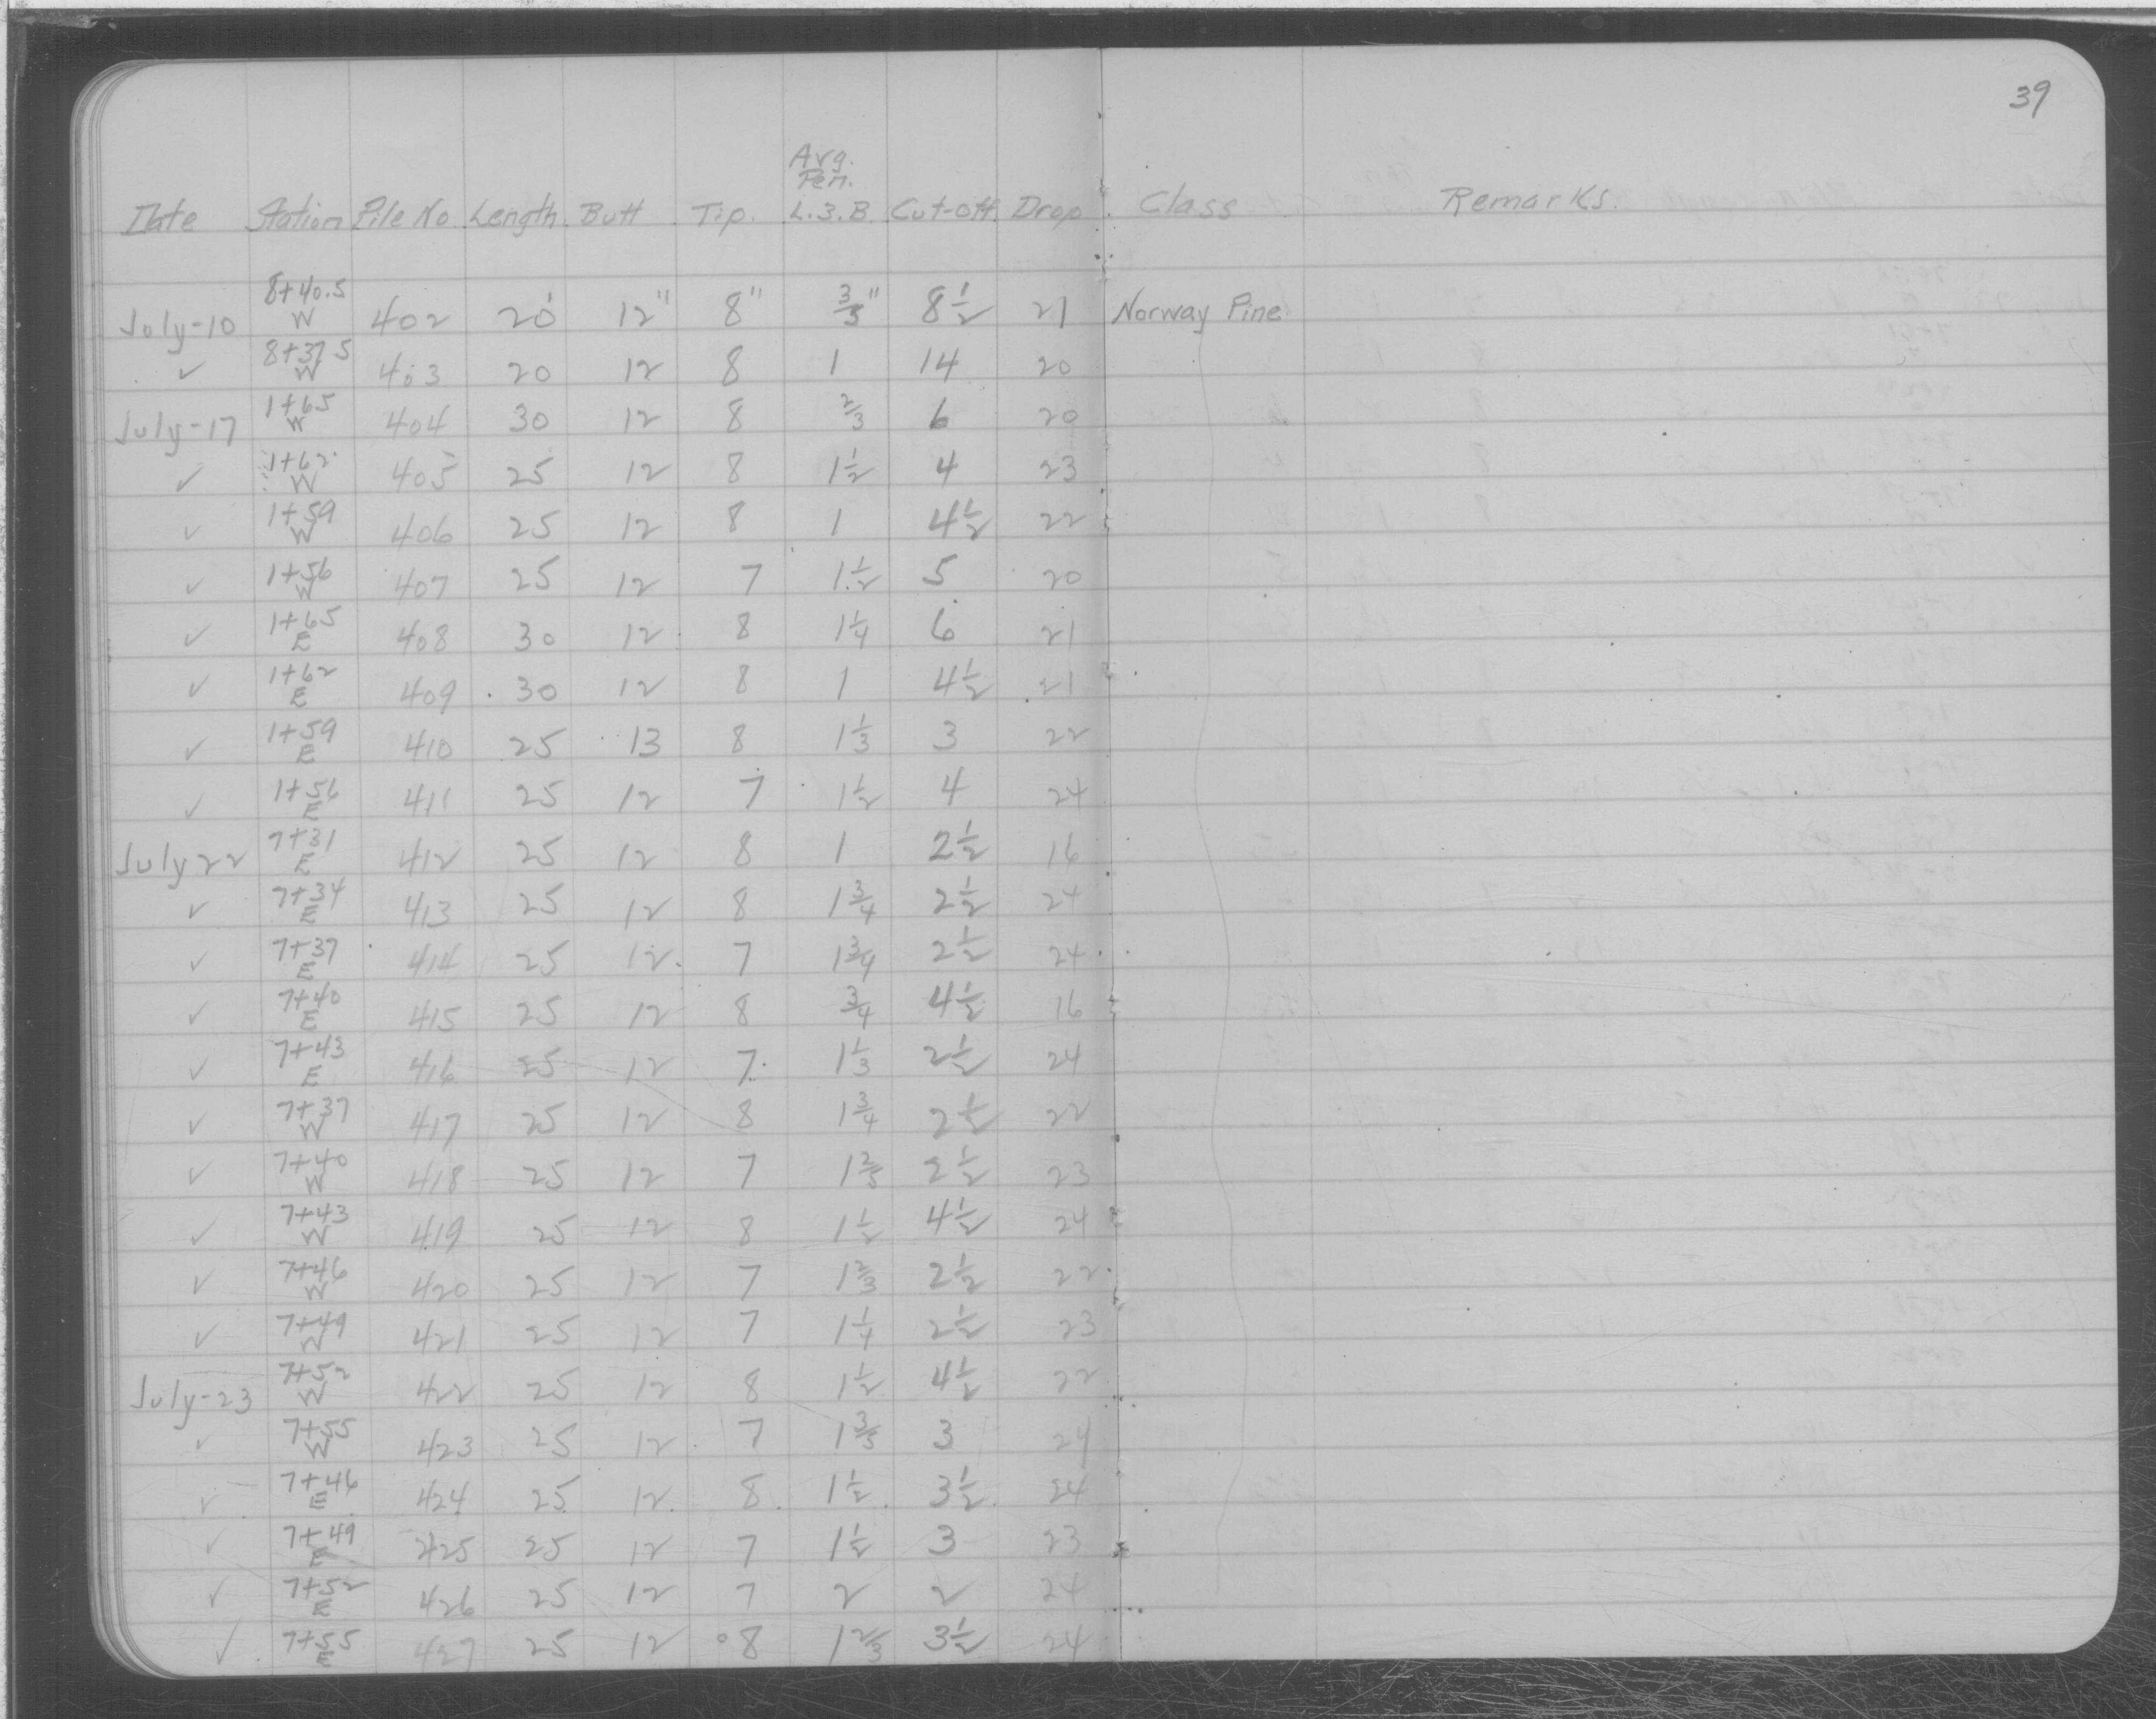 39
Avg.
Pen.
Date Station Pile No. Length Butt Tip. L.3.B. Cut-off Drop Class Remarks.
8+40.5
July-10 W 402 20' 12" 8" 3/5" 8 1/2 21 Norway Pine
8+37.5
✓ W 403 20 12 8 1 14 20
1+65
July-17 W 404 30 12 8 2/3 6 20
1+62
✓ W 405 25 12 8 1 1/2 4 23
1+59
✓ W 406 25 12 8 1 4 1/2 22
1+56
✓ W 407 25 12 7 1 1/2 5 20
1+65
✓ E 408 30 12 8 1 1/4 6 21
1+62
✓ E 409 30 12 8 1 4 1/2 21
1+59
✓ E 410 25 13 8 1 1/3 3 22
1+56
✓ E 411 25 12 7 1 1/2 4 24
7+31
July 22 E 412 25 12 8 1 2 1/2 16
7+34
✓ E 413 25 12 8 1 3/4 2 1/2 24
7+37
✓ E 414 25 12 7 1 3/4 2 1/2 24
7+40
✓ E 415 25 12 8 3/4 4 1/2 16
7+43
✓ E 416 25 12 7 1 1/3 2 1/2 24
7+37
✓ W 417 25 12 8 1 3/4 2 1/2 22
7+40
✓ W 418 25 12 7 1 2/3 2 1/2 23
7+43
✓ W 419 25 12 8 1 1/2 4 1/2 24
7+46
✓ W 420 25 12 7 1 2/3 2 1/2 22
7+49
✓ W 421 25 12 7 1 1/4 2 1/2 23
7+52
July-23 W 422 25 12 8 1 1/2 4 1/2 22
7+55
✓ W 423 25 12 7 1 3/5 3 24
7+46
✓ E 424 25 12 8 1 1/2 3 1/2 24
7+49
✓ E 425 25 12 7 1 1/2 3 23
7+52
✓ E 426 25 12 7 2 2 24
7+55
✓ E 427 25 12 8 1 2/3 3 1/2 24